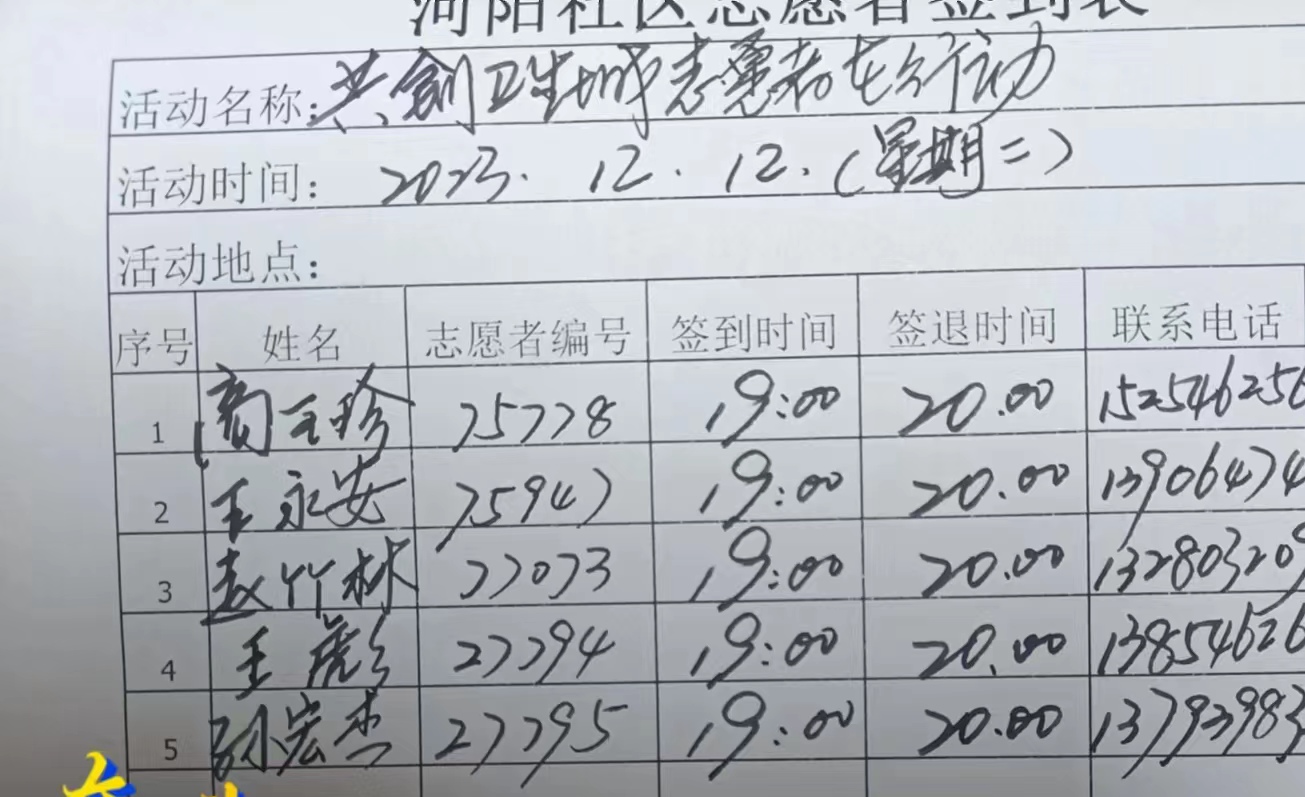 河阳社区志愿者签到表
活动名称:共创卫生城志愿者在行动
活动时间: 2023.12.12.(星期二)
活动地点:
序号 姓名 志愿者编号 签到时间 签退时间 联系电话
1 商玉珍 75778 19:00 20.00 152546256
2 王永安 75947 19:00 20.00 13906474
3 赵竹林 77073 19:00 20.00 132803209
4 王彪 27794 19:00 20.00 13854626
5 孙宏杰 27795 19:00 20.00 13793983